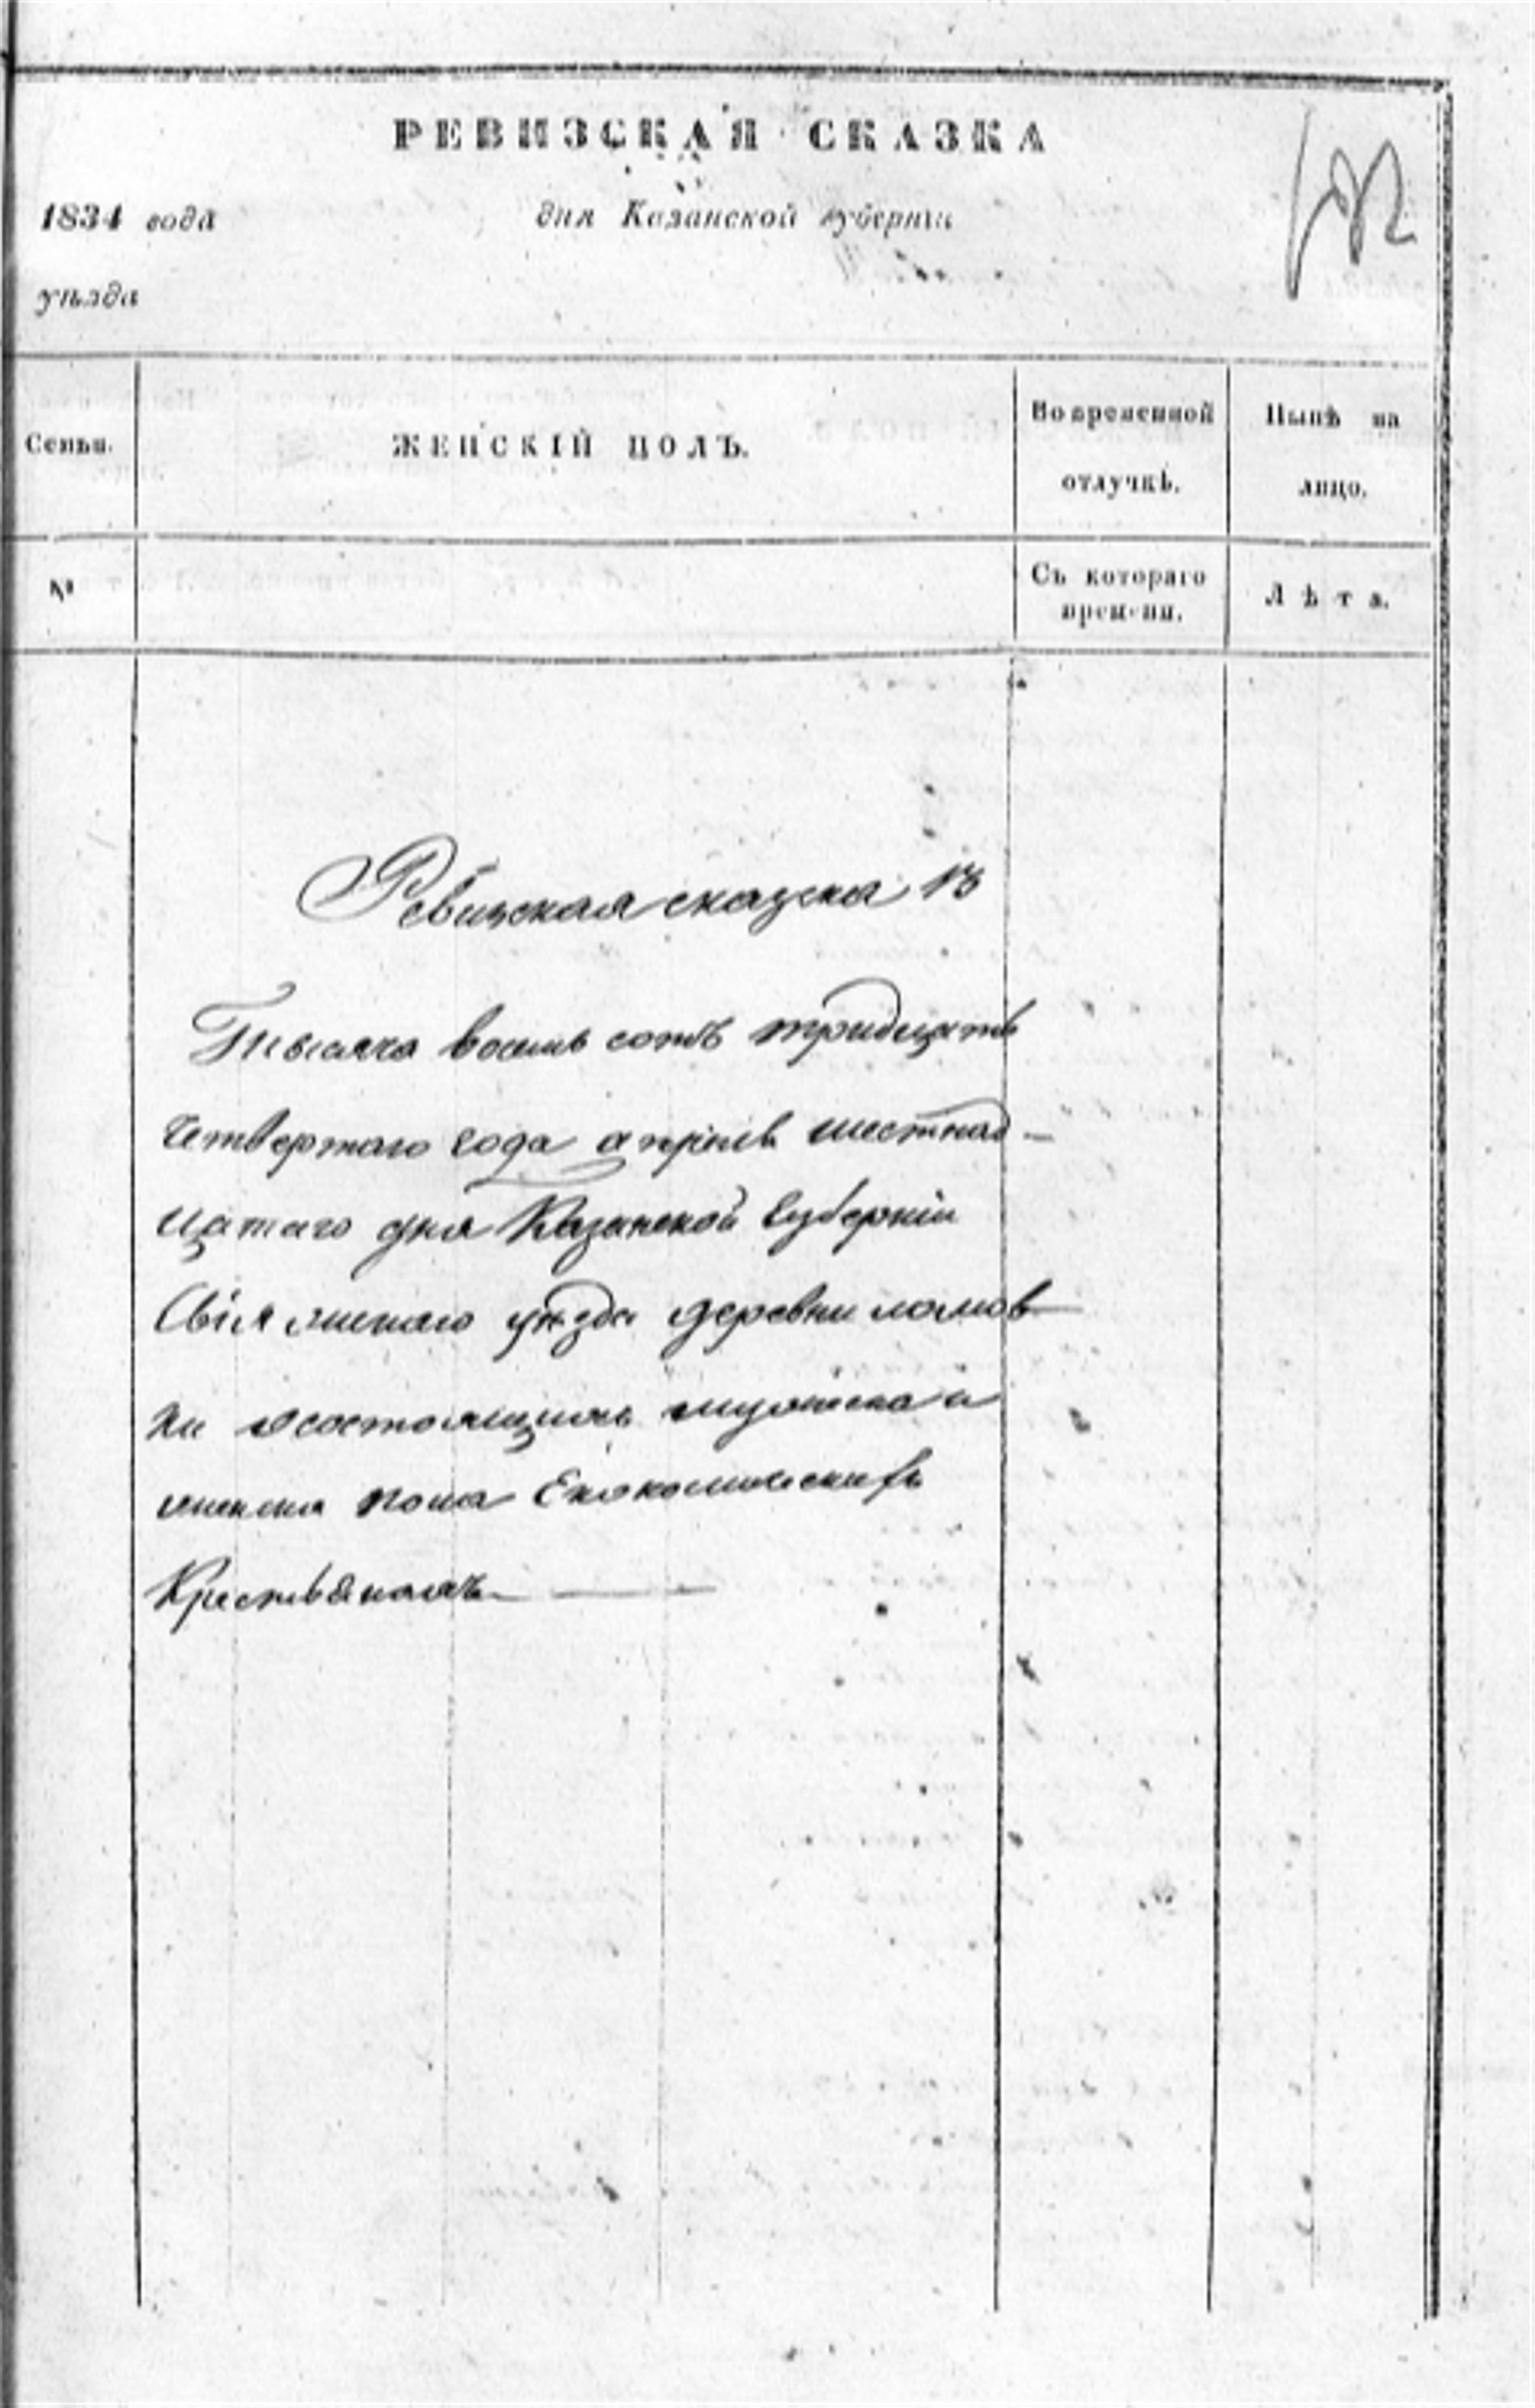 РЕВИЗСКАЯ СКАЗКА
1834 года дня Казанской губернiи
уѣзда
Семьи. ЖЕНСКIЙ ПОЛЪ. Во временной отлучкѣ. Нынѣ на лицо.
№ Съ котораго времени. Лѣта.
Ревизская сказка 13
Тысяча восемь сотъ тридцать
четвертаго года апрѣля шестнад-
цатаго дня Казанской Губернiи
Свiяжскаго уѣзда деревни ломов
ки осостоящихъ мужеска и
женска пола Економическихъ
Крестьянахъ